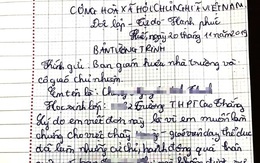 CỘNG HOÀ XÃ HỘI CHỦ NGHĨA VIỆT NAM
Độc lập - Tự do - Hạnh phúc
Huế, ngày 20 tháng 11 năm 2019
BẢN TƯỜNG TRÌNH
Kính gửi: Ban giám hiệu nhà trường và
cô giáo chủ nhiệm.
Em tên là:
Học sinh lớp: Trường THPT Cao Thắng
Lý do em viết đơn này là vì em muốn làm
chứng cho việc thầy - giáo viên dạy thể dục
đã làm những cử chỉ, hành động quá